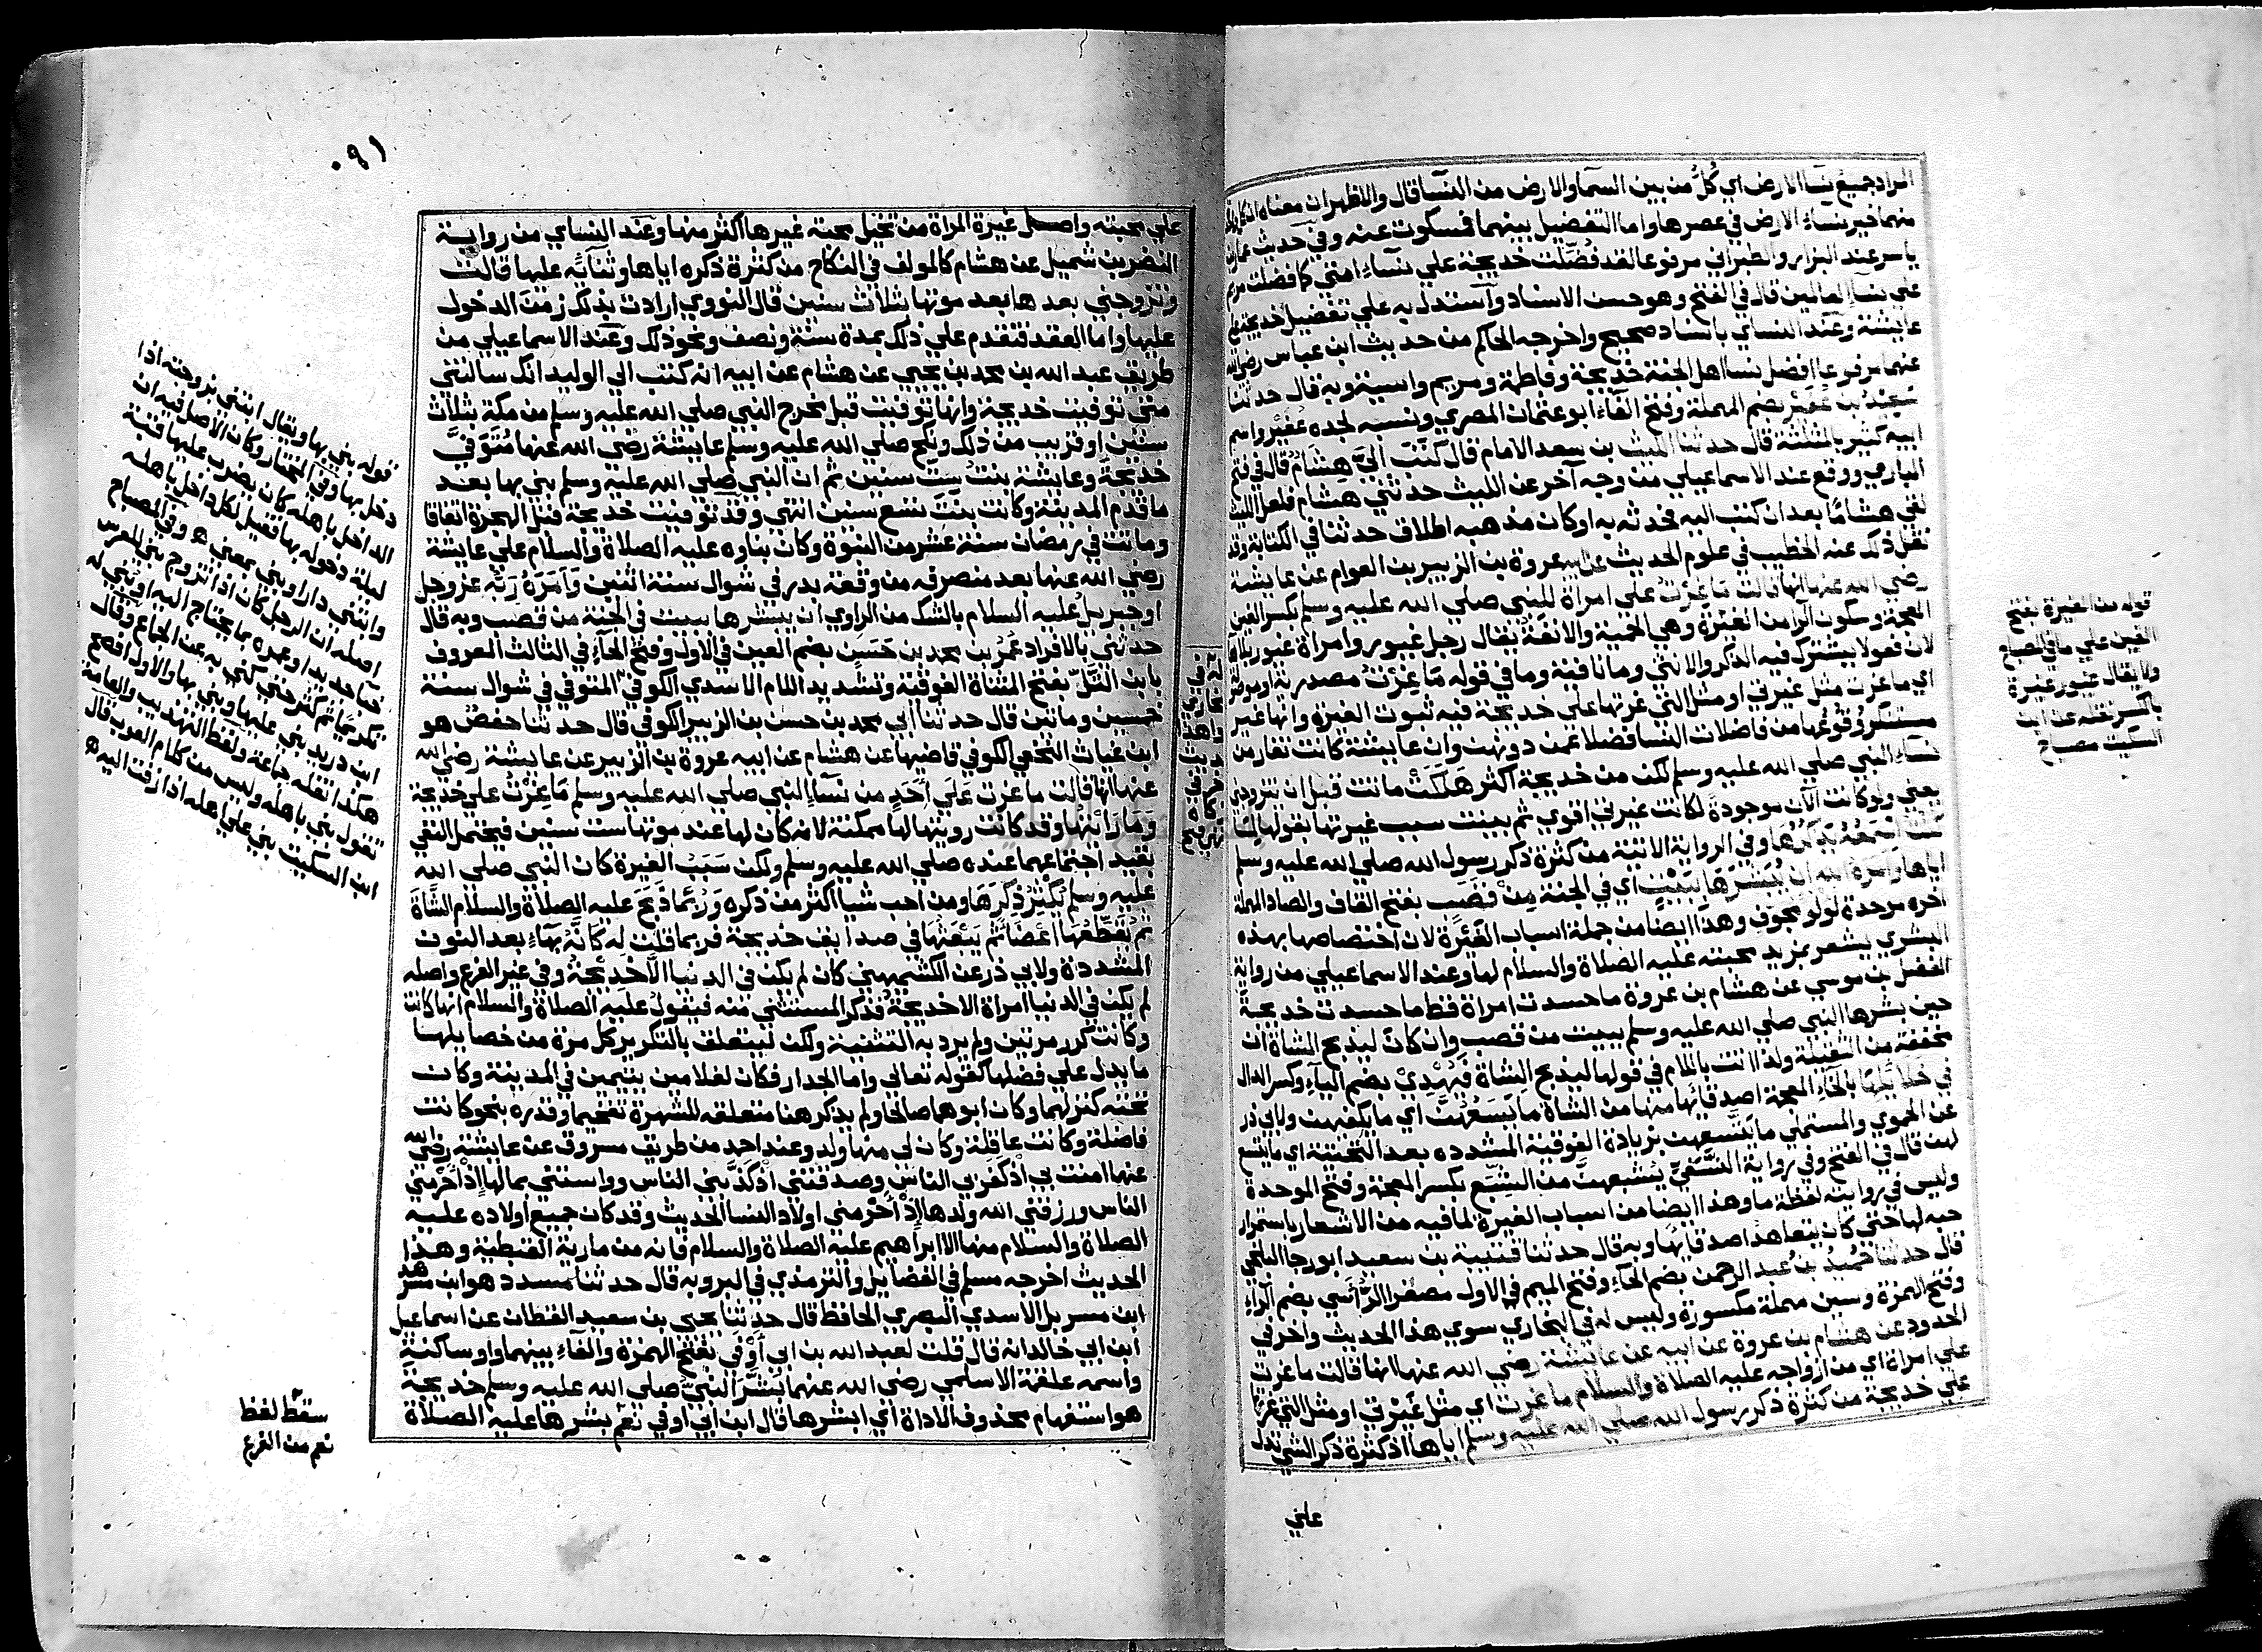 المراد جميع نسا الارض اي كل من بين السما والارض من النسا قال والاظهر ان معناه ان كل واحدة
منهما خير نساء الارض في عصرها واما التفضيل بينهما فسكوت عنه وفي حديث عمار بن
ياسر عند البزار والطبراني مرفوعا لقد فضلت خديجة علي نساء امتي كما فضلت مريم
علي نساء العالمين قال في الفتح وهو حسن الاسناد واستدل به علي تفضيل خديجة علي
عايشة وعند النساي باسناد صحيح واخرجه الحاكم من حديث ابن عباس رضي الله
عنهما مرفوعا افضل نسا اهل الجنة خديجة وفاطمة ومريم واسية وبه قال حدثنا
سعيد بن عفير بضم المهملة وفتح الفاء ابو عثمان المصري ونسبه لجده عفير واسم
ابيه كثير بالمثلثة قال حدثنا الليث بن سعد الامام قال كتب الي هشام قال في فتح
الباري ووقع عند الاسماعيلي من وجه آخر عن الليث حدثني هشام فلعل الليث
لقي هشاما بعد ان كتب اليه فحدثه به او كان مذهبه اطلاق حدثنا في الكتابة وقد
نقل ذلك عنه الخطيب في علوم الحديث عن ابيه عروة بن الزبير بن العوام عن عايشة
رضي الله عنها انها قالت ما غرت علي امراة للنبي صلي الله عليه وسلم بكسر الغين
المعجمة وسكون الرا من الغيرة وهي الحمية والانفة يقال رجل غيور وامراة غيور بلا هاء
لان فعولا يشترك فيه الذكر والانثي وما نافية وما في قوله ما غرت مصدرية او موصولة
اي ما غرت مثل غيرتي او مثل التي غرتها علي خديجة فيه ثبوت الغيرة وانها غير
مستنكر وقوعها من فاضلات النسا فضلا عمن دونهن وان عايشة كانت تغار من
نساء النبي صلي الله عليه وسلم لكن من خديجة اكثر هلكت ماتت قبل ان يتزوجني
يعني ولو كانت الآن موجودة لكانت غيرتي اقوي ثم بينت سبب غيرتها بقولها لما
كنت اسمعه يذكرها وفي الرواية الاتية من كثرة ذكر رسول الله صلي الله عليه وسلم
اياها وامره الله ان يبشرها ببيت اي في الجنة من قصب بفتح القاف والصاد المهملة
آخره موحدة لولو مجوف وهذا ايضا من جملة اسباب الغيرة لان اختصاصها بهذه
البشري يشعر بمزيد محبته عليه الصلاة والسلام لها وعند الاسماعيلي من رواية
الفضل بن موسي عن هشام بن عروة ما حسدت امراة قط ما حسدت خديجة
حين بشرها النبي صلي الله عليه وسلم ببيت من قصب وان كان ليذبح الشاة ان
مخففة من الثقيلة ولذا اتت باللام في قولها ليذبح الشاة فيهدي بضم الياء وكسر الدال
في خلائلها بالخاء المعجمة اصدقائها منها من الشاة ما يسعهن اي ما يكفيهن ولابي ذر
عن الحموي والمستملي ما يتسعهن بزيادة الفوقية المشدده بعد التحتية اي ما يتسع
لهن قال في الفتح وفي رواية النسفي يشبعهن من الشبع بكسر المعجمة وفتح الموحدة
وليس في روايته لفظة ما وهذا ايضا من اسباب الغيرة لما فيه من الاشعار باستمرار
حبه لها حتي كان يتعاهد اصدقايها وبه قال حدثنا قتيبة بن سعيد ابو رجا البلخي
قال حدثنا حميد بن عبد الرحمن بضم الحاء وفتح الميم في الاول مصغرا الرؤاسي بضم الراء
وفتح الهمزة وسين مهملة مكسورة وليس له في البخاري سوي هذا الحديث واخر في
الحدود عن هشام بن عروة عن ابيه عن عايشة رضي الله عنها انها قالت ما غرت
علي امراة اي من ازواجه عليه الصلاة والسلام ما غرت اي مثل غيرتي او مثل التي غرتها
علي خديجة من كثرة ذكر رسول الله صلي الله عليه وسلم اياها اذ كثرة ذكر الشي تدل
علي
قوله من الغيرة بفتح
الغين علي ما في المصباح
ولا يقال غيور غيرة
بالكسر نقله عن ابن
السكيت مصباح
٠٩١
علي محبته واصل غيرة المراة من تخيل محبة غيرها اكثر منها وعند النساي من رواية
النضر بن شميل عن هشام كالمولف في النكاح من كثرة ذكره اياها وثنائه عليها قالت
وتزوجني بعدها بعد موتها بثلاث سنين قال النووي ارادت بذلك زمن الدخول
عليها واما العقد فتقدم علي ذلك بمدة سنة ونصف ونحو ذلك وعند الاسماعيلي من
طريق عبد الله بن محمد بن يحيي عن هشام عن ابيه انه كتب الي الوليد انك سالتني
متي توفيت خديجة وانها توفيت قبل مخرج النبي صلي الله عليه وسلم من مكة بثلاث
سنين او قريب من ذلك ونكح صلي الله عليه وسلم عايشة رضي الله عنها متوفي
خديجة وعايشة بنت ست سنين ثم ان النبي صلي الله عليه وسلم بني بها بعد
ما قدم المدينة وكانت بنت تسع سنين انتهي وقد توفيت خديجة قبل الهجرة اتفاقا
وماتت في رمضان سنة عشر من النبوة وكان بناوه عليه الصلاة والسلام علي عايشة
رضي الله عنها بعد منصرفه من وقعة بدر في شوال سنة اثنين وامره ربه عز وجل
او جبريل عليه السلام بالشك من الراوي ان يبشرها ببيت في الجنة من قصب وبه قال
حدثني بالافراد عمر بن محمد بن حسن بضم العين في الاول وفتح الحاء في الثالث المعروف
بابن التل بفتح المثناة الفوقية وتشديد اللام الاسدي الكوفي المتوفي في شوال سنة
خمسين ومائتين قال حدثنا ابي محمد بن حسن بن الزبير الكوفي قال حدثنا حفص هو
ابن غياث النخعي الكوفي قاضيها عن هشام عن ابيه عروة بن الزبير عن عايشة رضي الله
عنها انها قالت ما غرت علي احد من نساء النبي صلي الله عليه وسلم ما غرت علي خديجة
وما رايتها وقد كانت رويتها لها ممكنة لانه كان لها عند موتها ست سنين فيحتمل النفي
بقيد اجتماعهما عنده صلي الله عليه وسلم ولكن سبب الغيرة كان النبي صلي الله
عليه وسلم يكثر ذكرها ومن احب شيا اكثر من ذكره وربما ذبح عليه الصلاة والسلام الشاة
ثم يقطعها اعضاء ثم يبعثها في صدايق خديجة فربما قلت له كانه بهاء بعد النون
المشددة ولابي ذر عن الكشميهني كان لم يكن في الدنيا الا خديجة وفي غير الفرع واصله
لم يكن في الدنيا امراة الا خديجة فذكر المستثني منه فيقول عليه الصلاة والسلام انها كانت
وكانت كرر مرتين ولم يرد به التثنية ولكن ليتعلق بالتكرير كل مرة من خصايلها
ما يدل علي فضلها كقوله تعالي واما الجدار فكان لغلامين يتيمين في المدينة وكان
تحته كنز لهما وكان ابوهما صالحا ولم يذكر هنا متعلقه للشهرة تفخيما وقدره بنحو كانت
فاضلة وكانت عاقلة وكان لي منها ولد وعند احمد من طريق مسروق عن عايشة رضي الله
عنها امنت بي اذ كفر بي الناس وصدقتني اذ كذبني الناس وواستني بمالها اذ احرمني
الناس ورزقني الله ولدها اذ احرمني اولاد النسا الحديث وقد كان جميع اولاده عليه
الصلاة والسلام منها الا ابراهيم عليه الصلاة والسلام فانه من مارية القبطية وهذا
الحديث اخرجه مسلم في الفضايل والترمذي في البر وبه قال حدثنا مسدد هو ابن مسرهد
ابن مسربل الاسدي البصري الحافظ قال حدثنا يحيي بن سعيد القطان عن اسماعيل
ابن ابي خالد انه قال قلت لعبد الله بن ابي اوفي بفتح الهمزة والفاء بينهما واو ساكنة
واسمه علقمة الاسلمي رضي الله عنهما بشر النبي صلي الله عليه وسلم خديجة
هو استفهام محذوف الاداة اي ابشرها قال ابن ابي اوفي نعم بشرها عليه الصلاة
قوله بني بها ويقال ابتني بزوجته اذا
دخل بها وفي المختار وكان الاصل فيه ان
الداخل باهله كان يضرب عليها قبة
ليلة دخوله بها فقيل لكل داخل باهله
وابتني دارا وبني بمعني ه وفي المصباح
اصله ان الرجل كان اذا تزوج بني للعرس
خباء جديدا وعمره بما يحتاج اليه او بني له
تكريما ثم كثر حتي كني به عن الجماع وقال
ابن دريد بني عليها وبني بها والاول افصح
هكذا نقله جماعة ولفظ التهذيب والعامة
تقول بني باهله وليس من كلام العرب قال
ابن السكيت بني علي اهله اذا زفت اليه ه
سقط لفظ
نعم من الفرع